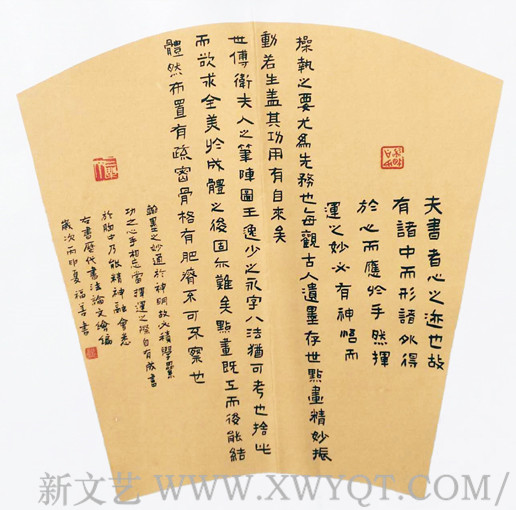 夫書者心之迹也故
有諸中而形諸外得
於心而應於手然揮
運之妙必有神悟而
操執之要尤爲先務也每觀古人遺墨存世點畫精妙振
動若生盖其功用有自來矣
世傳衛夫人之筆陣圖王逸少之永字八法猶可考也捨此
而欲求全美於成體之後固亦難矣點畫既工而後能結
體然布置有疏密骨格有肥瘠不可不察也
翰墨之妙通於神明故必積學累
功之心手相忘當揮運之際自有成書
於胸中乃能精神融會悉
右書歷代書法論文會編
歲次丙申夏 福善書
新文艺 WWW.XWYQT.COM/